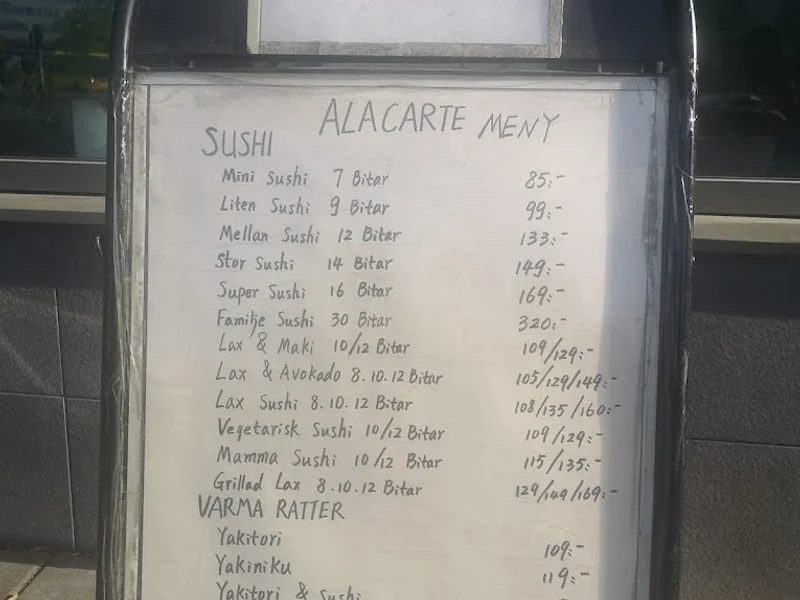 ALACARTE MENY
SUSHI
Mini Sushi 7 Bitar 85:-
Liten Sushi 9 Bitar 99:-
Mellan Sushi 12 Bitar 133:-
Stor Sushi 14 Bitar 149:-
Super Sushi 16 Bitar 169:-
Familje Sushi 30 Bitar 320:-
Lax & Maki 10/12 Bitar 109/129:-
Lax & Avokado 8.10.12 Bitar 105/129/149:-
Lax Sushi 8.10.12 Bitar 108/135/160:-
Vegetarisk Sushi 10/12 Bitar 109/129:-
Mamma Sushi 10/12 Bitar 115/135:-
Grillad Lax 8.10.12 Bitar 129/149/169:-
VARMA RATTER
Yakitori 109:-
Yakiniku 119:-
Yakitori & Sushi